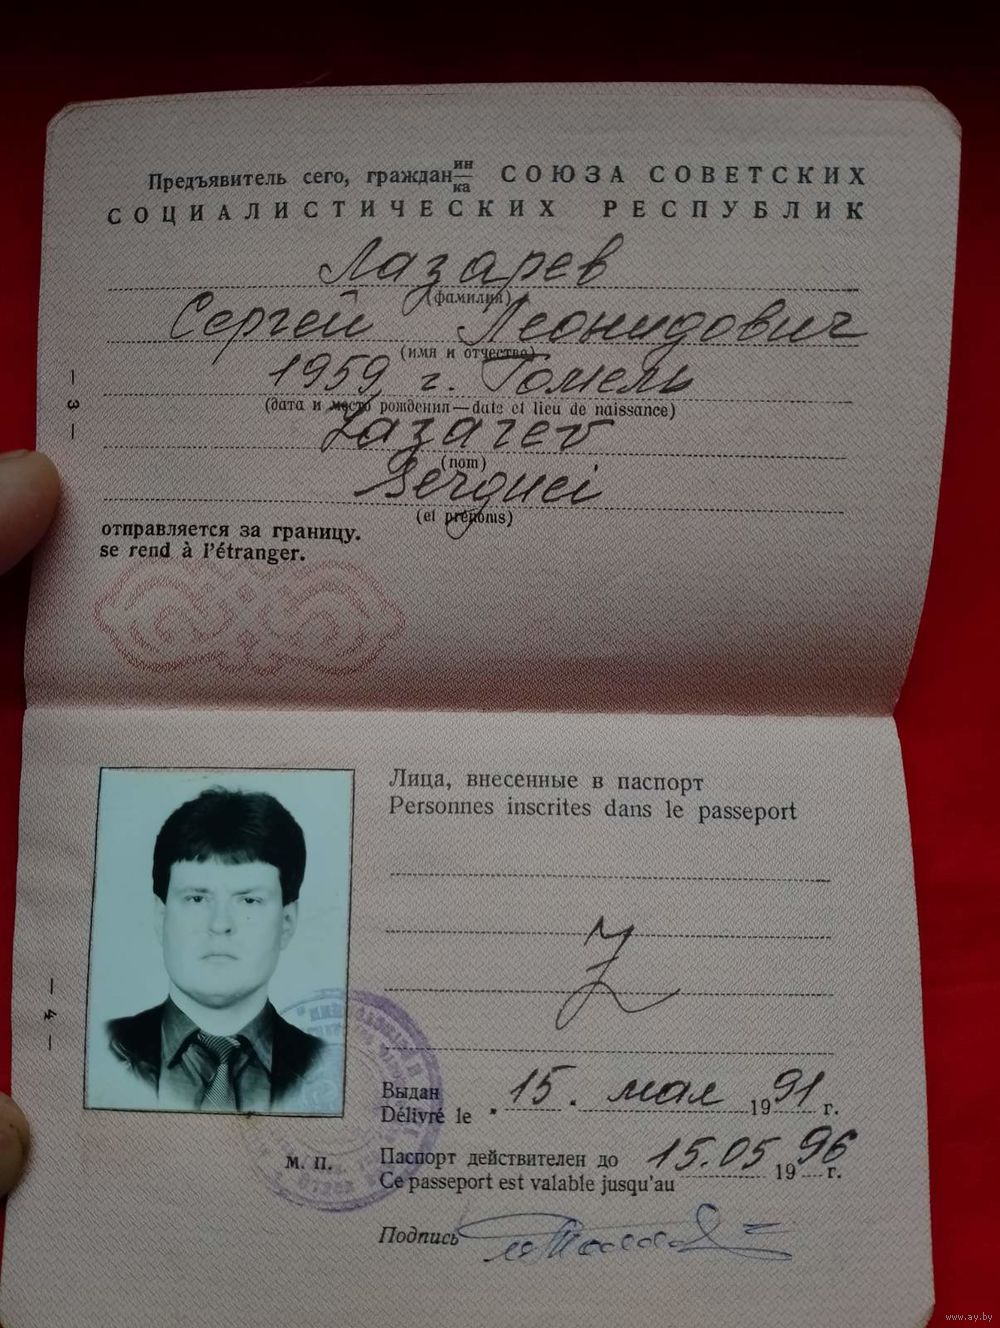 Предъявитель сего, гражданин/ка СОЮЗА СОВЕТСКИХ
СОЦИАЛИСТИЧЕСКИХ РЕСПУБЛИК
Лазарев
(фамилия)
Сергей Леонидович
(имя и отчество)
1959 г. Гомель
(дата и место рождения — date et lieu de naissance)
Lazarev
(nom)
Serguei
(et prénoms)
отправляется за границу.
se rend à l'étranger.
— 3 —
Лица, внесенные в паспорт
Personnes inscrites dans le passeport
Z
Выдан 15. мая 1991 г.
Délivré le
Паспорт действителен до 15.05 1996 г.
Ce passeport est valable jusqu'au
М. П.
Подпись
— 4 —
www.ay.by